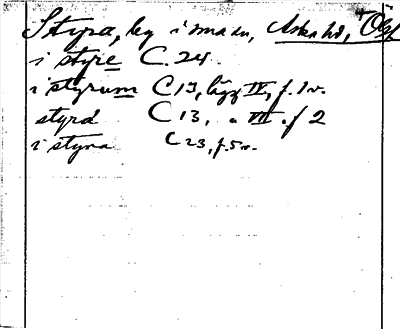 Styra, by i msn, Aska hd, Ög
i styre C 24.
i styrum C 19, lägg IV, f. 1 v.
styrd C 13, " VII . f 2
i styra C 23, f. 5 v.